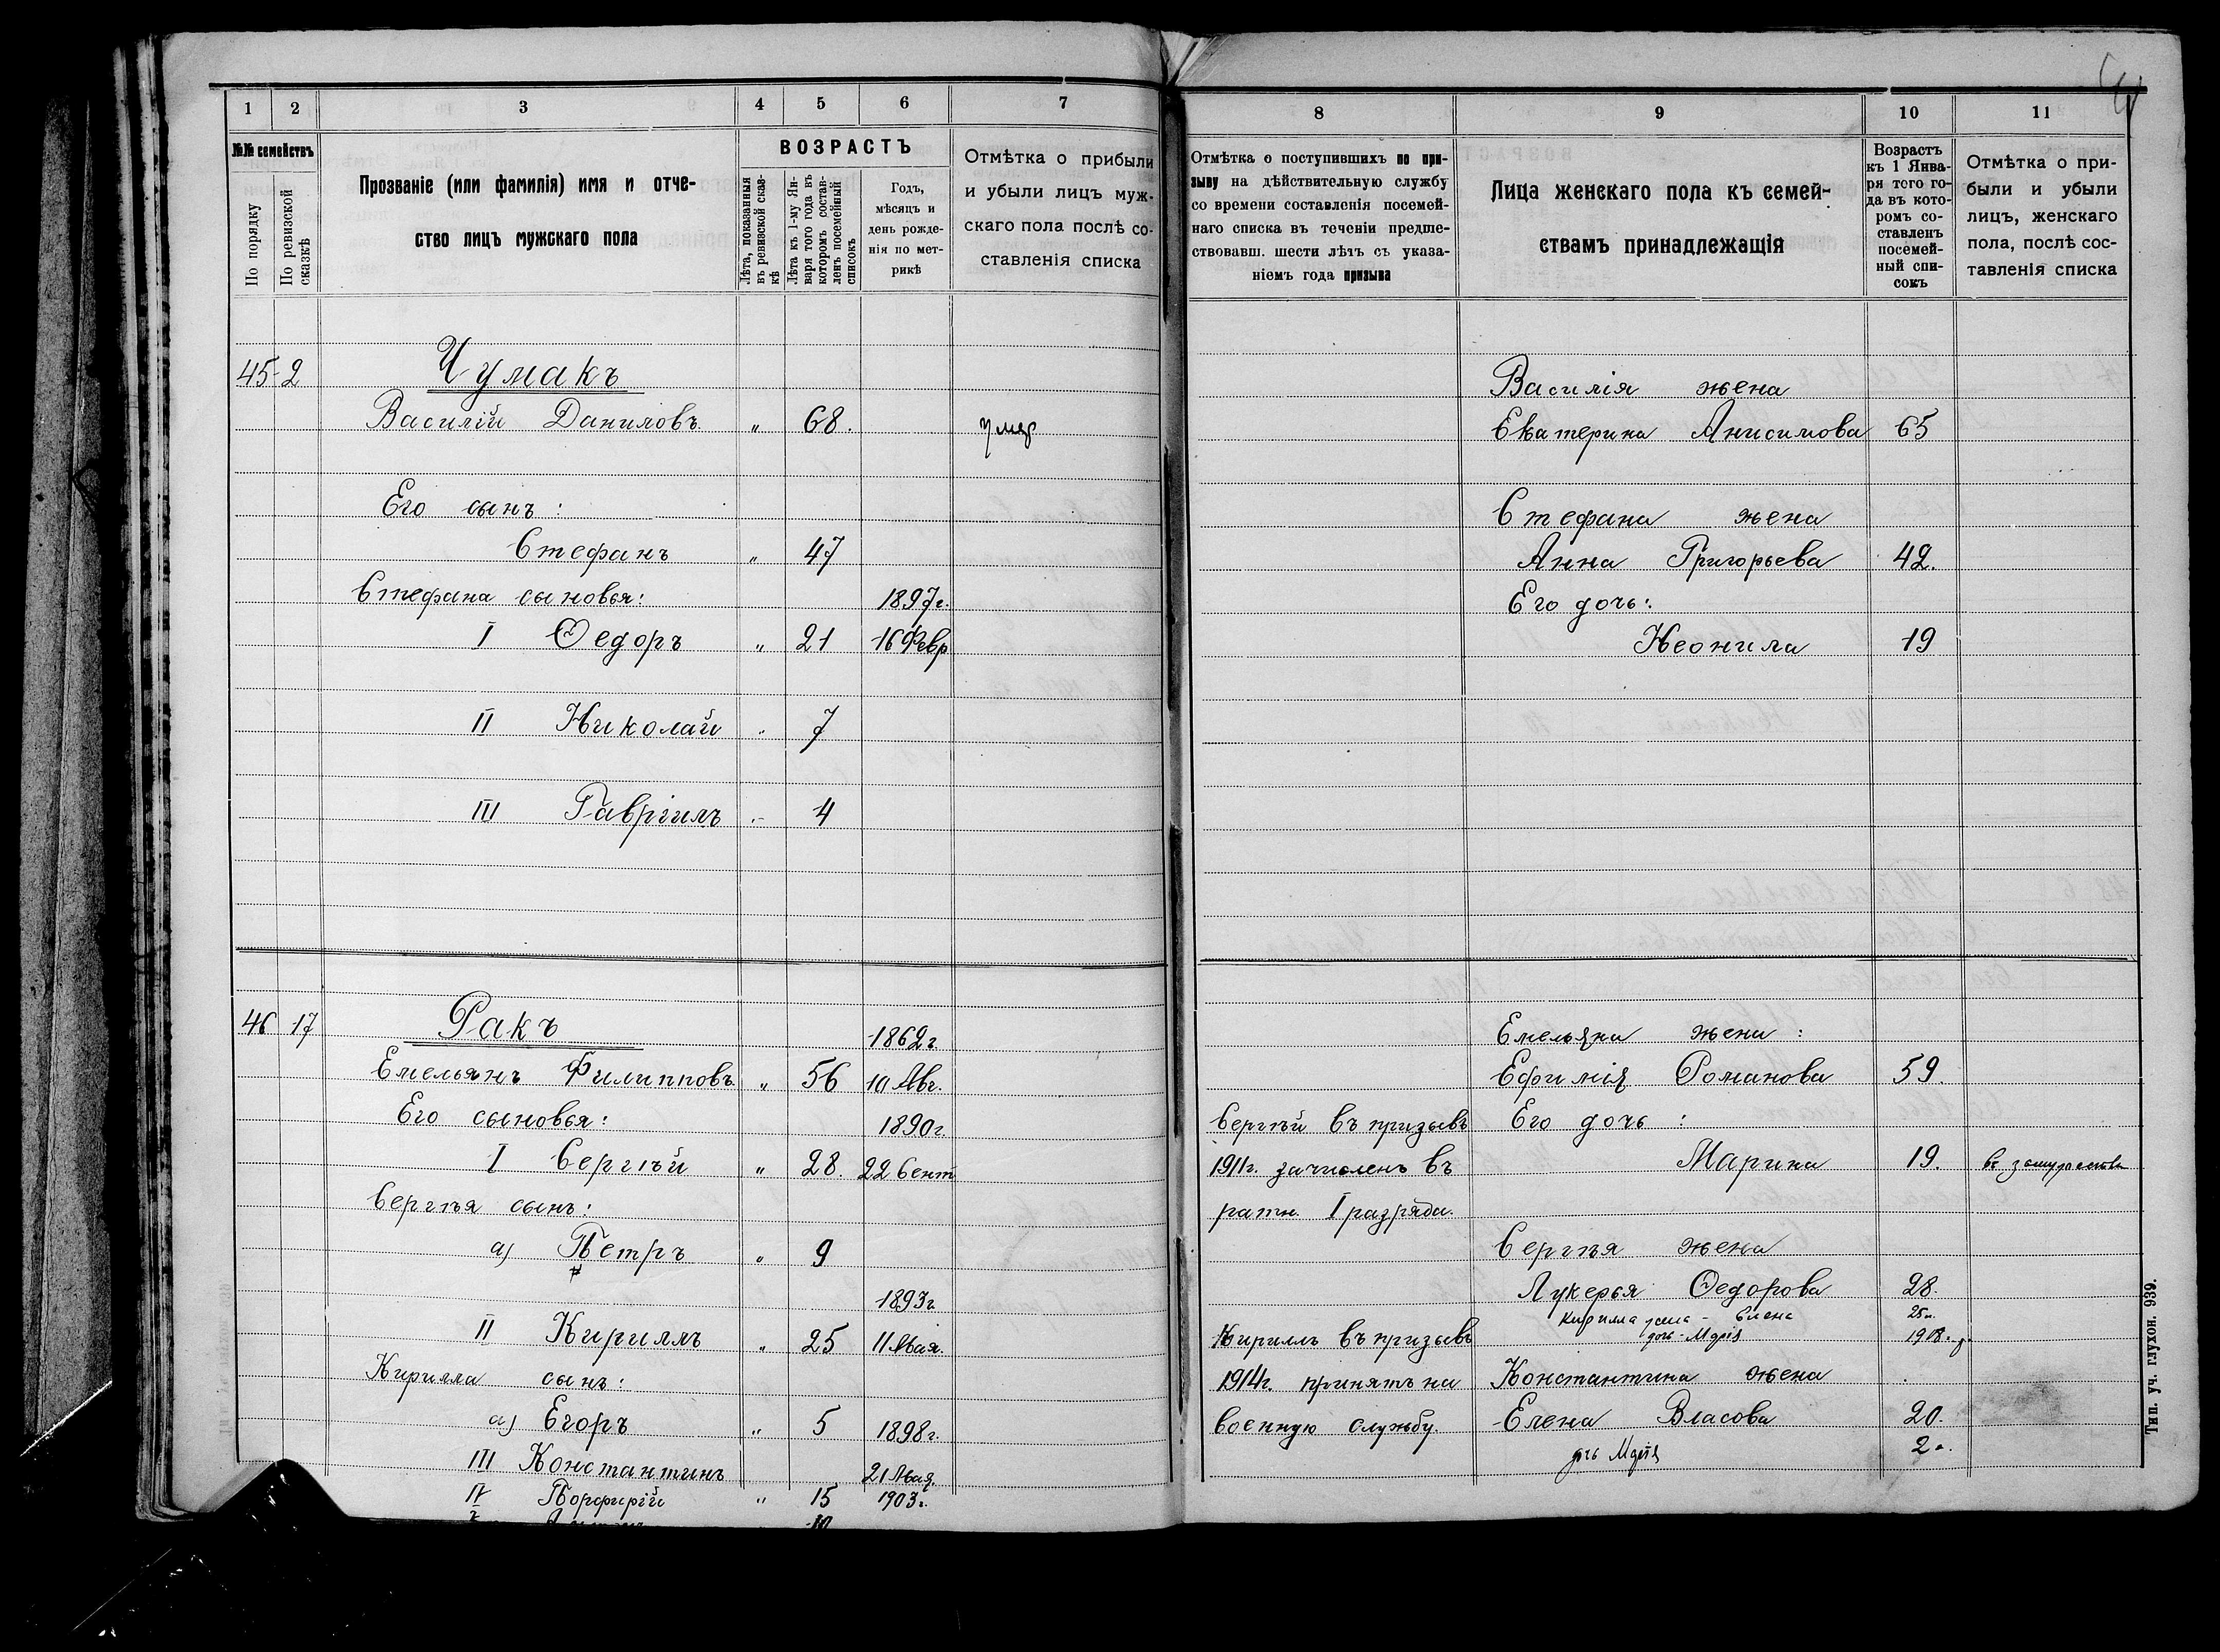 1 2 3 4 5 6 7
№№ семействъ
По порядку
По ревизской сказкѣ
Прозваніе (или фамилія) имя и отче-
ство лицъ мужскаго пола
ВОЗРАСТЪ
Лѣта, показанныя въ ревизской сказ-кѣ
Лѣта къ 1-му Ян-варя того года въ которомъ состав-ленъ посемейный списокъ
Годъ,
мѣсяцъ и
день рожде-
нія по мет-
рикѣ
Отмѣтка о прибыли
и убыли лицъ муж-
скаго пола послѣ со-
ставленія списка
45 2 Чумакъ
Василій Даниловъ " 68. умер
Его сынъ:
Стефанъ " 47
Стефана сыновья: 1897г.
I Ѳедоръ " 21 16 Февр
II Николай " 7
III Гавріилъ " 4
46 17 Ракъ 1862г
Емельянъ Филипповъ " 56 10 Авг.
Его сыновья: 1890г.
I Сергѣй " 28. 22 Сент
Сергѣя сынъ:
а) Петръ " 9
1893г.
II Кириллъ " 25 11 Мая.
Кирилла сынъ:
а) Егоръ " 5 1898г.
III Константинъ 21 Мая.
IV Порфирій " 15 1903г.
10
8 9 10 11
Отмѣтка о поступившихъ по при-
зыву на дѣйствительную службу
со времени составленія посемей-
наго списка въ теченіи предше-
ствовавш. шести лѣтъ съ указа-
ніемъ года призыва
Лица женскаго пола къ семей-
ствамъ принадлежащія
Возрастъ
къ 1 Янва-
ря того го-
да въ кото-
ромъ со-
ставленъ
посемей-
ный спи-
сокъ
Отмѣтка о при-
были и убыли
лицъ, женскаго
пола, послѣ сос-
тавленія списка
Василія жена
Екатерина Анисимова 65
Стефана жена
Анна Григорьева 42.
Его дочь:
Неонила 19
Емельяна жена:
Ефимія Романова 59.
Сергѣй въ призывъ Его дочь:
1911г. зачисленъ въ Марина 19. в замужестве
ратн. I разряда.
Сергѣя жена
Лукерья Ѳедорова 28.
Кирилла жена - Елена 25л.
Кириллъ въ призывъ дочь - Марія 1918.г.
1914г. принятъ на Константина жена
военную службу. Елена Власова 20.
дочь Марія 2г.
Тип. уч. глухон. 939.